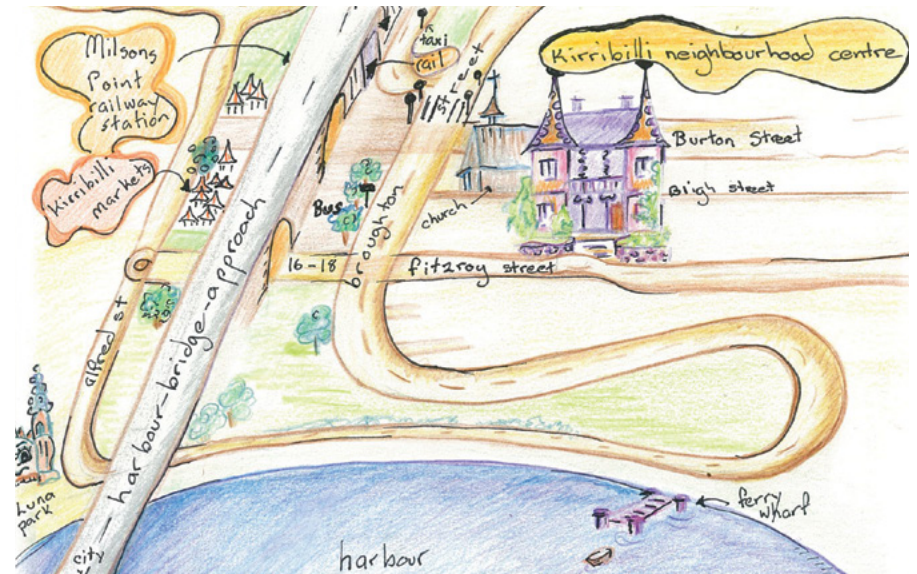 Milsons
Point
railway
station
taxi
rail
street
Kirribilli neighbourhood centre
Kirribilli
markets
Burton Street
Bligh street
church
Bus
broughton
16-18
fitzroy street
alfred st
harbour-bridge-approach
Luna
park
city
harbour
ferry
wharf